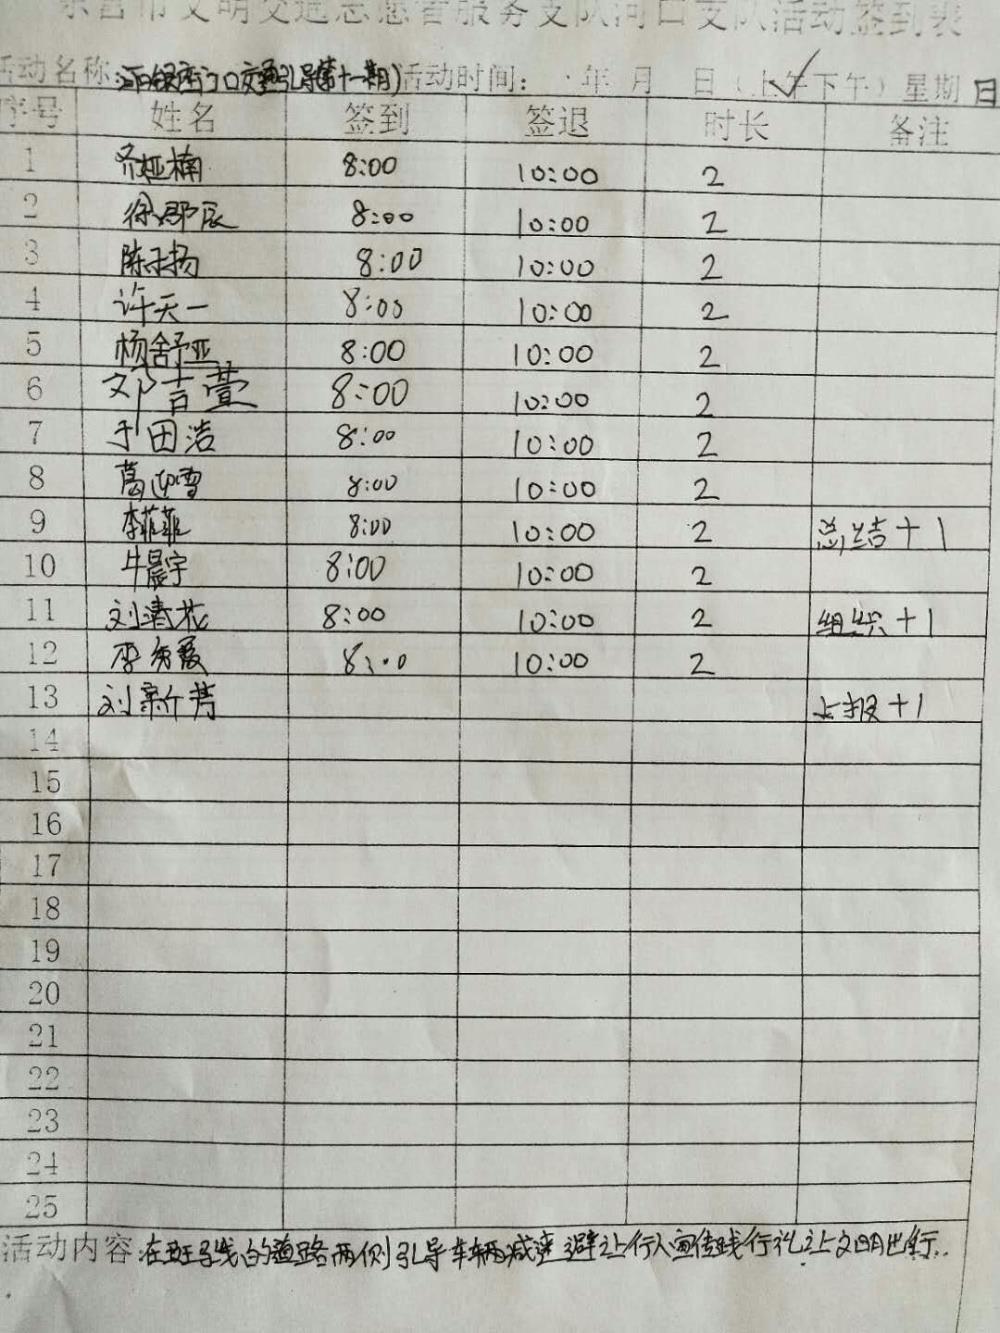 东营市文明交通志愿者服务支队河口支队活动签到表
活动名称: 门口交通引导(第十一期) 活动时间: 年 月 日 (上午下午) 星期日
序号 姓名 签到 签退 时长 备注
1 齐娅楠 8:00 10:00 2
2 徐郡辰 8:00 10:00 2
3 陈子扬 8:00 10:00 2
4 许天一 8:00 10:00 2
5 杨舒亚 8:00 10:00 2
6 邓吉萱 8:00 10:00 2
7 于田浩 8:00 10:00 2
8 葛迎雪 8:00 10:00 2
9 李菲菲 8:00 10:00 2 总结+1
10 牛晨宇 8:00 10:00 2
11 刘春花 8:00 10:00 2 组织+1
12 李秀霞 8:00 10:00 2
13 刘新芳 上报+1
14
15
16
17
18
19
20
21
22
23
24
25
活动内容:在斑马线的道路两侧引导车辆减速避让行人宣传践行礼让文明出行.